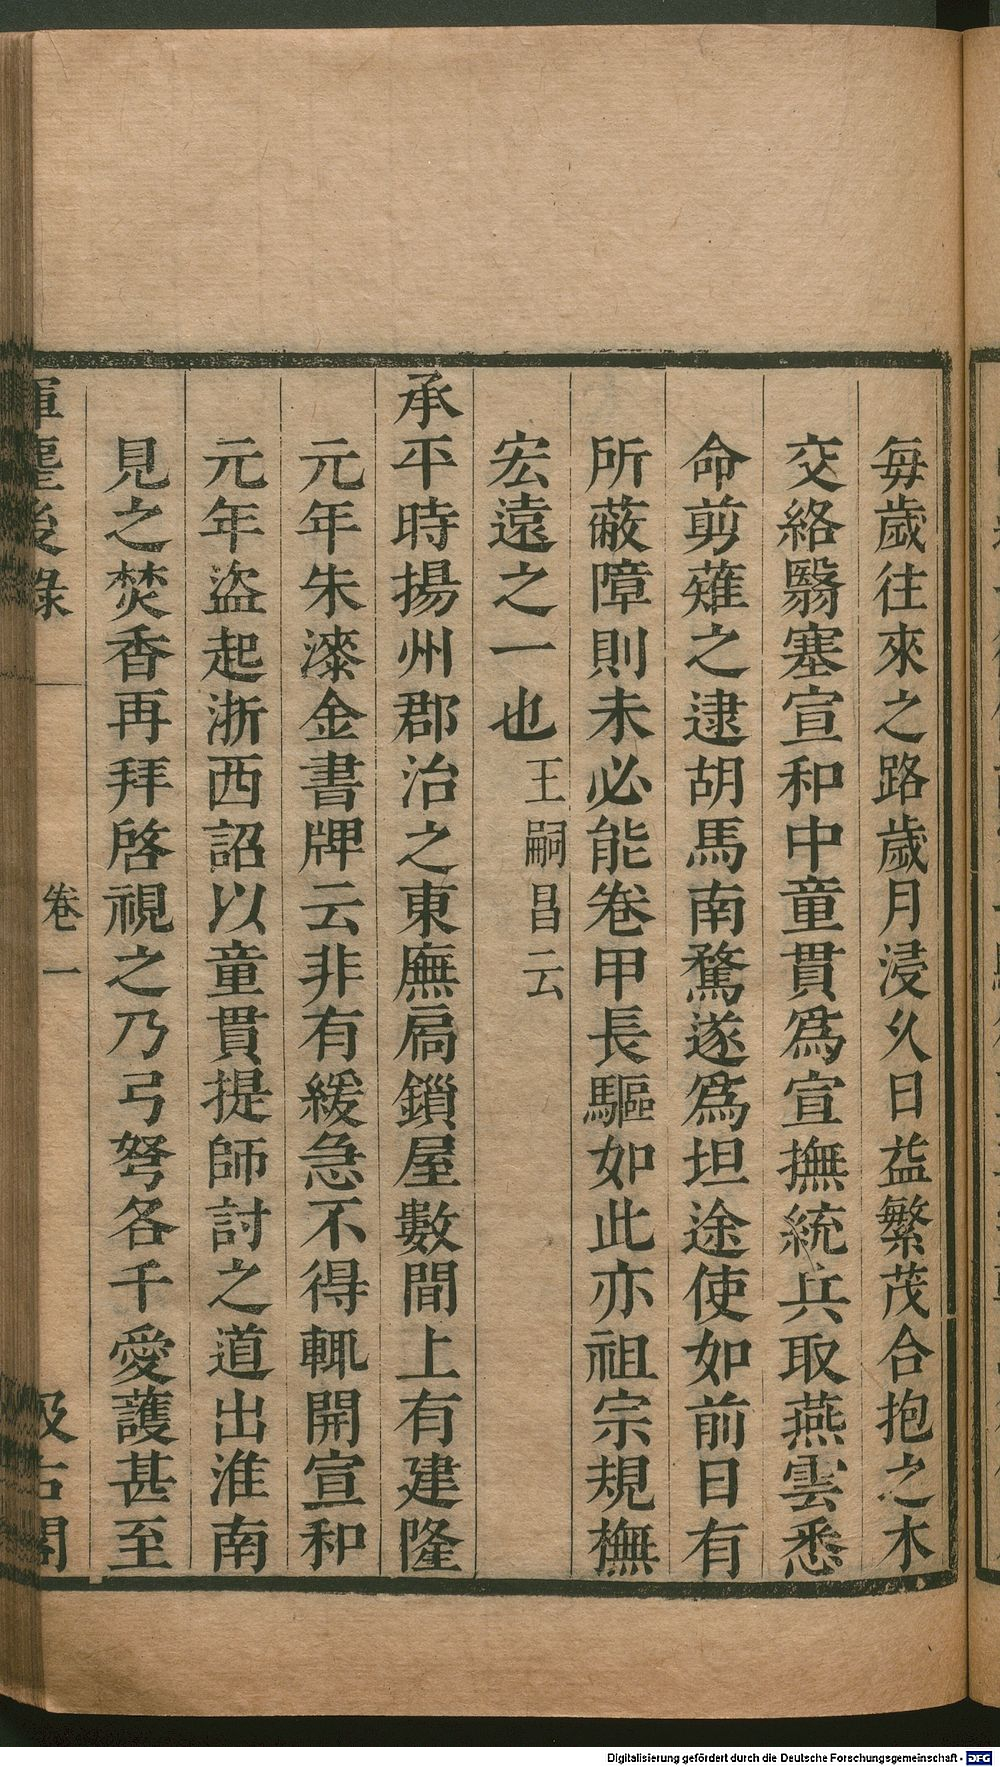 每歲往來之路歲月浸久日益繁茂合抱之木
交絡翳塞宣和中童貫爲宣撫統兵取燕雲悉
命剪薙之逮胡馬南騖遂爲坦途使如前日有
所蔽障則未必能卷甲長驅如此亦祖宗規橅
宏遠之一也王嗣昌云
承平時揚州郡治之東廡扃鎖屋數間上有建隆
元年朱漆金書牌云非有緩急不得輒開宣和
元年盜起浙西詔以童貫提師討之道出淮南
見之焚香再拜啓視之乃弓弩各千愛護甚至
揮麈後錄 卷一 汲古閣
Digitalisierung gefördert durch die Deutsche Forschungsgemeinschaft - DFG